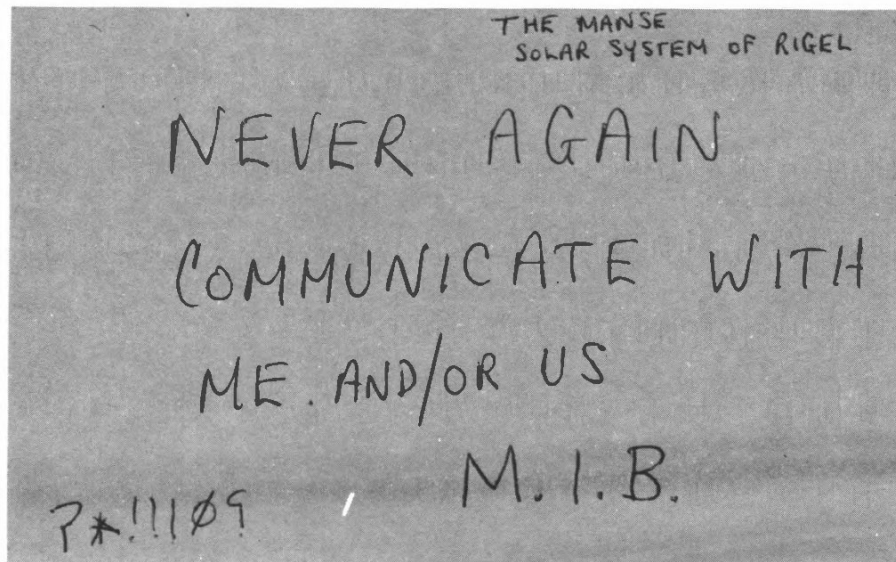 THE MANSE
SOLAR SYSTEM OF RIGEL
NEVER AGAIN
COMMUNICATE WITH
ME. AND/OR US
M.I.B.
?*!!!1Ø9